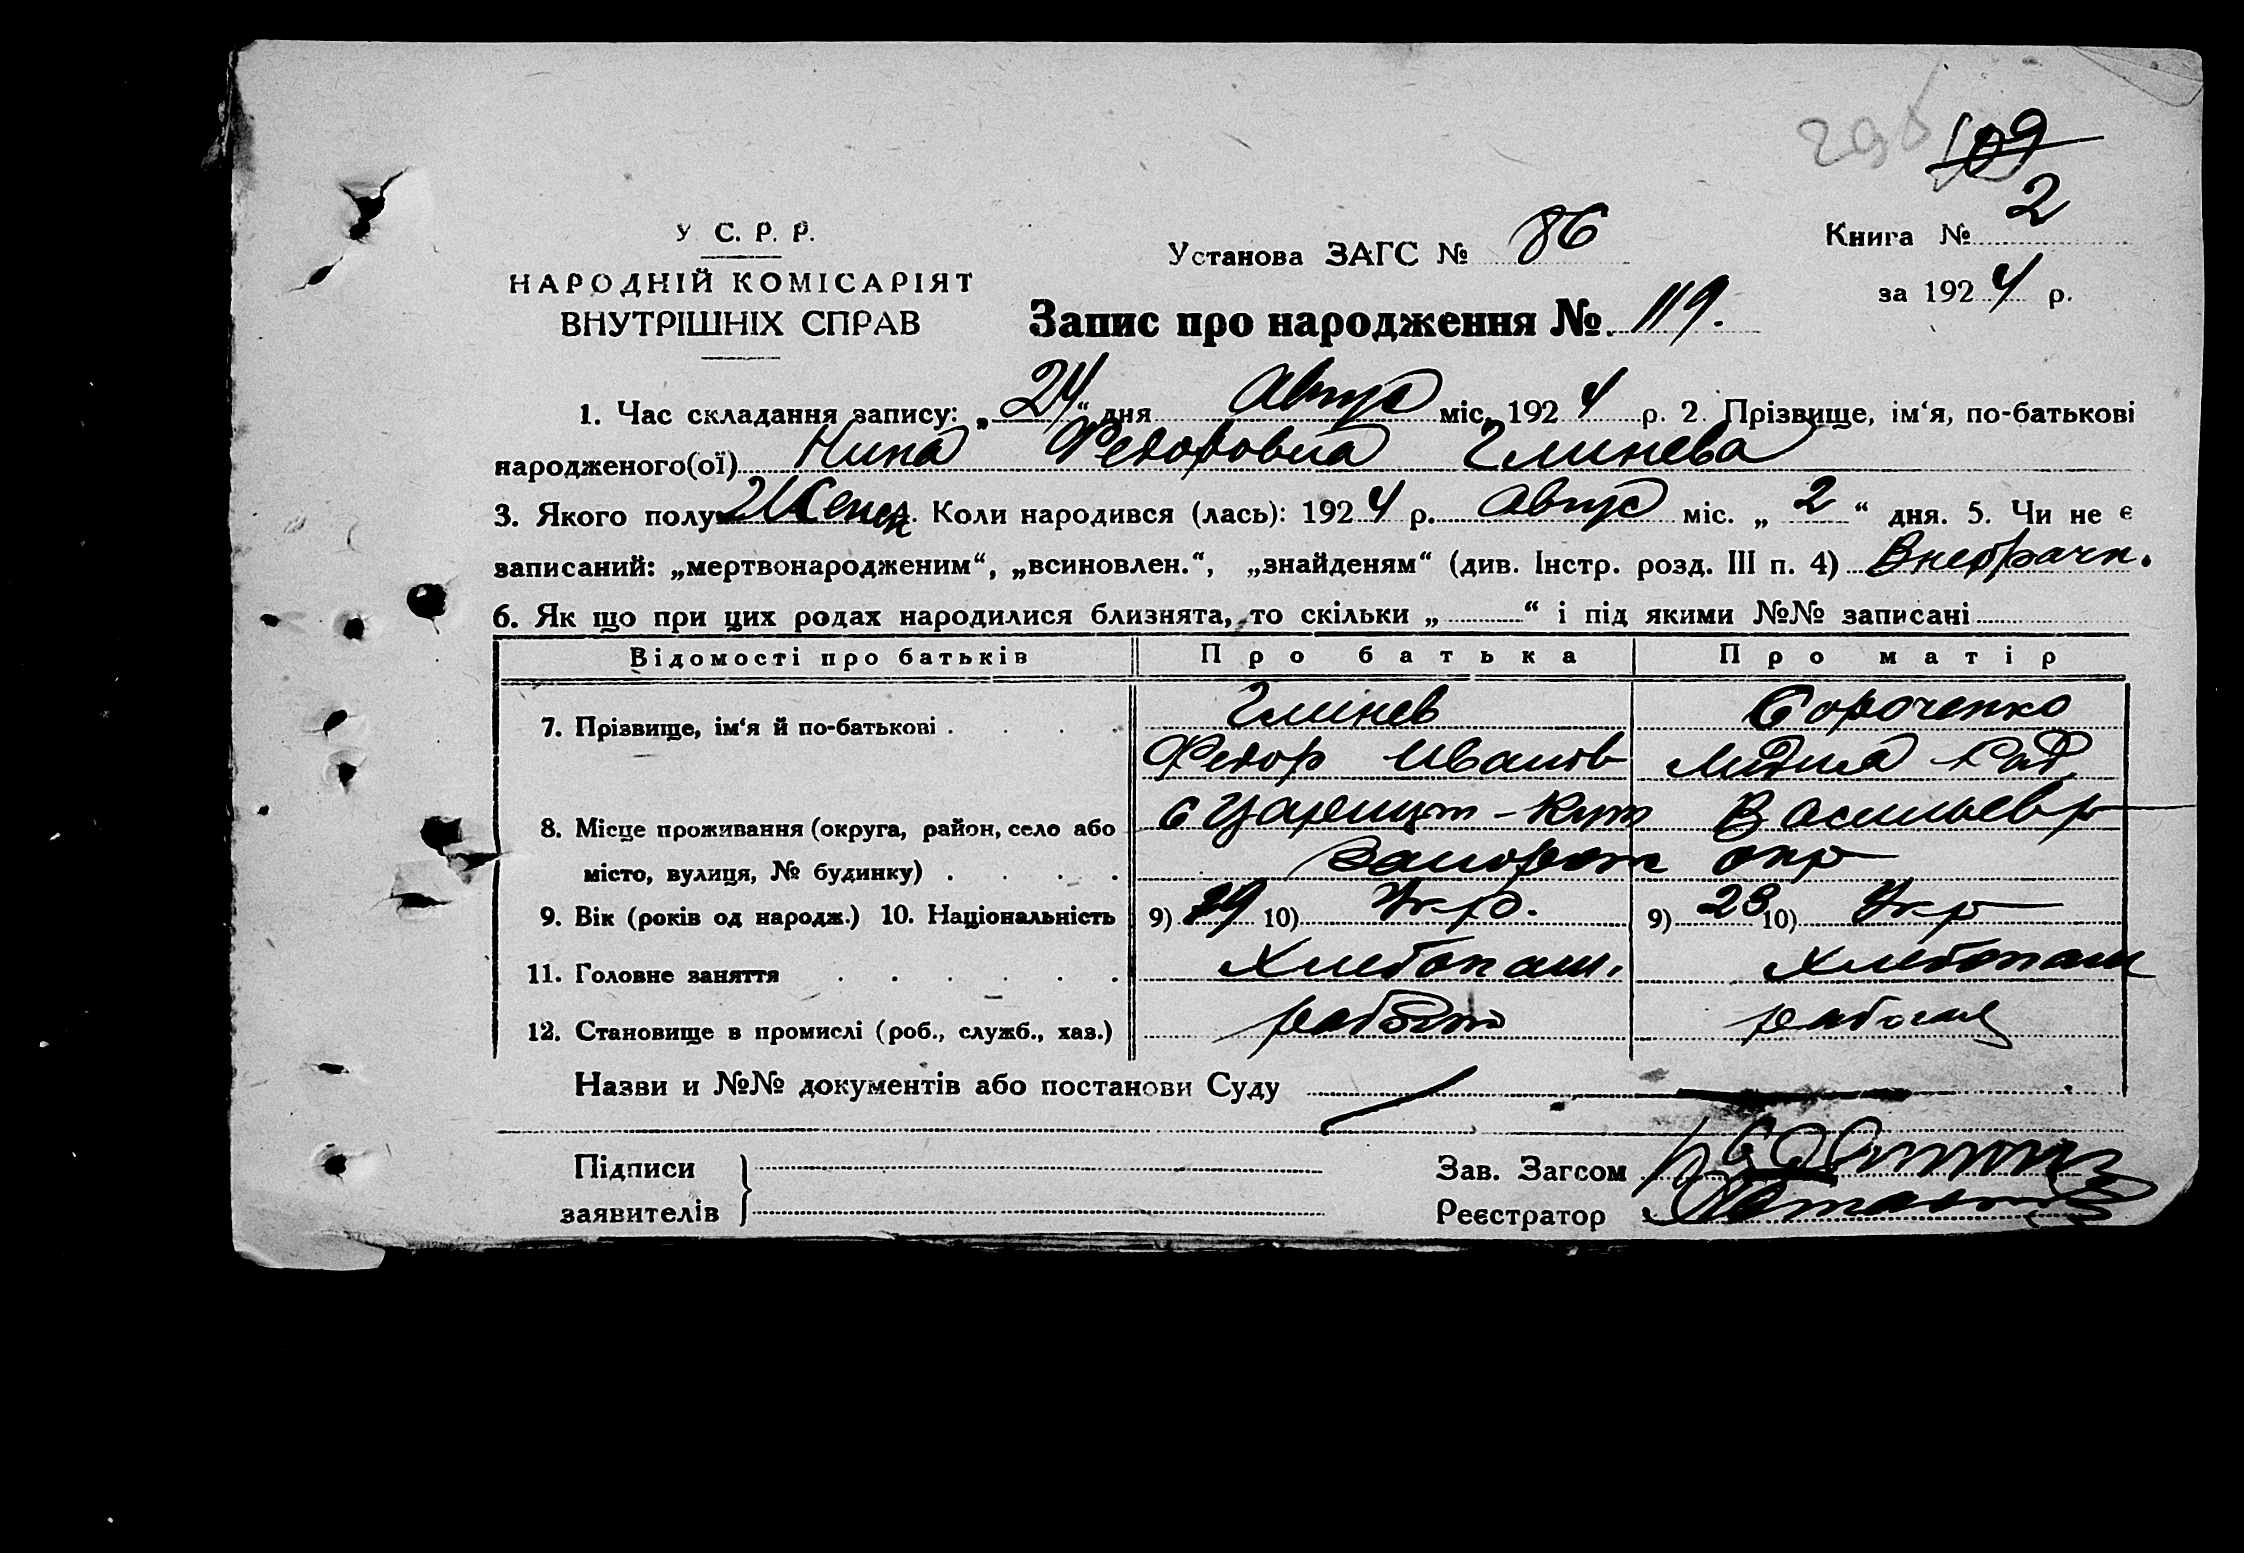 296 109
У С. Р. Р.
НАРОДНІЙ КОМІСАРІЯТ
ВНУТРІШНІХ СПРАВ
Установа ЗАГС № 86
Книга № 2
за 1924 р.
Запис про народження №. 119.
1. Час складання запису: „24“ дня Август міс. 1924 р. 2. Прізвище, ім‘я, по-батькові
народженого(ої) Нина Федоровна Глинева
3. Якого полу Женск. Коли народився (лась): 1924 р. Август міс. „2“ дня. 5. Чи не є
записаний: „мертвонародженим“, „всиновлен.“, „знайденям“ (див. Інстр. розд. III п. 4) Внебрачн.
6. Як що при цих родах народилися близнята, то скільки „ “ і під якими №№ записані
Відомості про батьків Про батька Про матір
7. Прізвище, ім‘я й по-батькові Глинев Сороченко
Федор Иванов Лидия
8. Місце проживання (округа, район, село або с Царицын-Кут Васильевр
місто, вулиця, № будинку) Запорож окр
9. Вік (років од народж.) 10. Національність 9) 10) Укр. 9) 23 10) Укр
11. Головне заняття Хлебопаш. Хлебопаш
12. Становище в промислі (роб., служб., хаз.) рабочая
Назви и №№ документів або постанови Суду
Підписи
заявителів
Зав. Загсом
Реєстратор